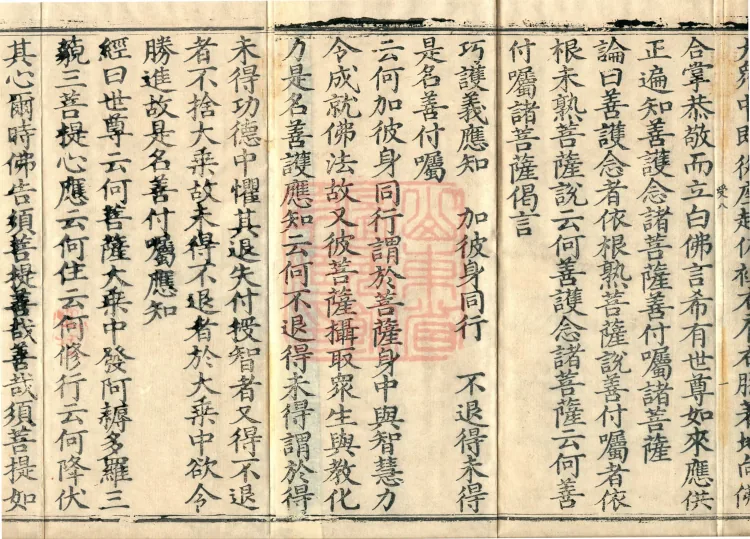 大衆中即從座起偏袒右肩右膝著地向佛
合掌恭敬而立白佛言希有世尊如來應供
正遍知善護念諸菩薩善付囑諸菩薩
論曰善護念者依根熟菩薩說善付囑者依
根未熟菩薩說云何善護念諸菩薩云何善
付囑諸菩薩偈言
巧護義應知 加彼身同行 不退得未得
是名善付囑
云何加彼身同行謂於菩薩身中與智慧力
令成就佛法故又彼菩薩攝取衆生與教化
力是名善護應知云何不退得未得謂於得
未得功德中懼其退失付授智者又得不退
者不捨大乗故未得不退者於大乗中欲令
勝進故是名善付囑應知
經曰世尊云何菩薩大乗中發阿耨多羅三
藐三菩提心應云何住云何修行云何降伏
其心爾時佛告須菩提善哉善哉須菩提如